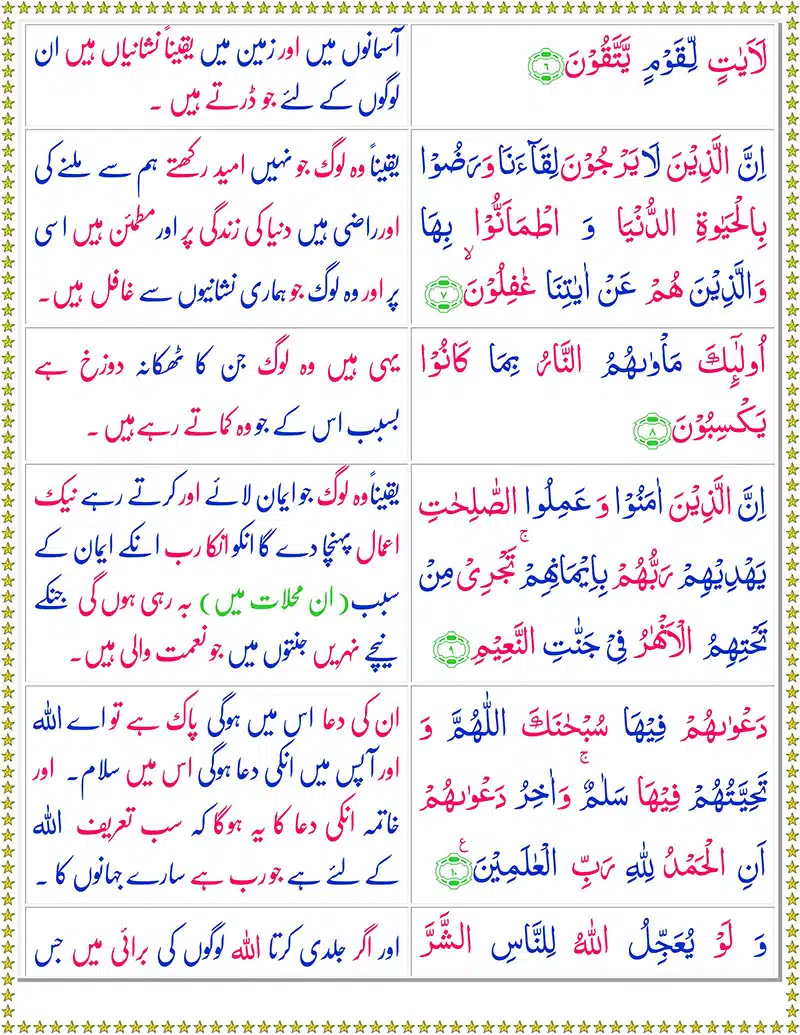 لَاٰیٰتٍ لِّقَوْمٍ یَّتَّقُوْنَ ﴿۶﴾
آسمانوں میں اور زمین میں یقیناً نشانیاں ہیں ان
لوگوں کے لئے جو ڈرتے ہیں ۔
اِنَّ الَّذِیْنَ لَا یَرْجُوْنَ لِقَآءَنَا وَ رَضُوْا
بِالْحَیٰوةِ الدُّنْیَا وَ اطْمَاَنُّوْا بِهَا
وَالَّذِیْنَ هُمْ عَنْ اٰیٰتِنَا غٰفِلُوْنَ ۙ﴿۷﴾
یقیناً وہ لوگ جو نہیں امید رکھتے ہم سے ملنے کی
اور راضی ہیں دنیا کی زندگی پر اور مطمئن ہیں اسی
پر اور وہ لوگ جو ہماری نشانیوں سے غافل ہیں۔
اُولٰٓئِكَ مَاْوٰىهُمُ النَّارُ بِمَا كَانُوْا
یَكْسِبُوْنَ ﴿۸﴾
یہی ہیں وہ لوگ جن کا ٹھکانہ دوزخ ہے
بسبب اس کے جو وہ کماتے رہے ہیں ۔
اِنَّ الَّذِیْنَ اٰمَنُوْا وَ عَمِلُوا الصّٰلِحٰتِ
یَهْدِیْهِمْ رَبُّهُمْ بِاِیْمَانِهِمْ ۚ تَجْرِیْ مِنْ
تَحْتِهِمُ الْاَنْهٰرُ فِیْ جَنّٰتِ النَّعِیْمِ ﴿۹﴾
یقیناً وہ لوگ جو ایمان لائے اور کرتے رہے نیک
اعمال پہنچا دے گا انکو انکا رب انکے ایمان کے
سبب (ان محلات میں) بہ رہی ہوں گی جنکے
نیچے نہریں جنتوں میں جو نعمت والی ہیں۔
دَعْوٰىهُمْ فِیْهَا سُبْحٰنَكَ اللّٰهُمَّ وَ
تَحِیَّتُهُمْ فِیْهَا سَلٰمٌ ۚ وَ اٰخِرُ دَعْوٰىهُمْ
اَنِ الْحَمْدُ لِلّٰهِ رَبِّ الْعٰلَمِیْنَ ﴿۱۰﴾ ع
ان کی دعا اس میں ہوگی پاک ہے تو اے اللہ
اور آپس میں انکی دعا ہوگی اس میں سلام۔ اور
خاتمہ انکی دعا کا یہ ہوگا کہ سب تعریف اللہ
کے لئے ہے جو رب ہے سارے جہانوں کا ۔
وَ لَوْ یُعَجِّلُ اللّٰهُ لِلنَّاسِ الشَّرَّ
اور اگر جلدی کرتا اللہ لوگوں کی برائی میں جس